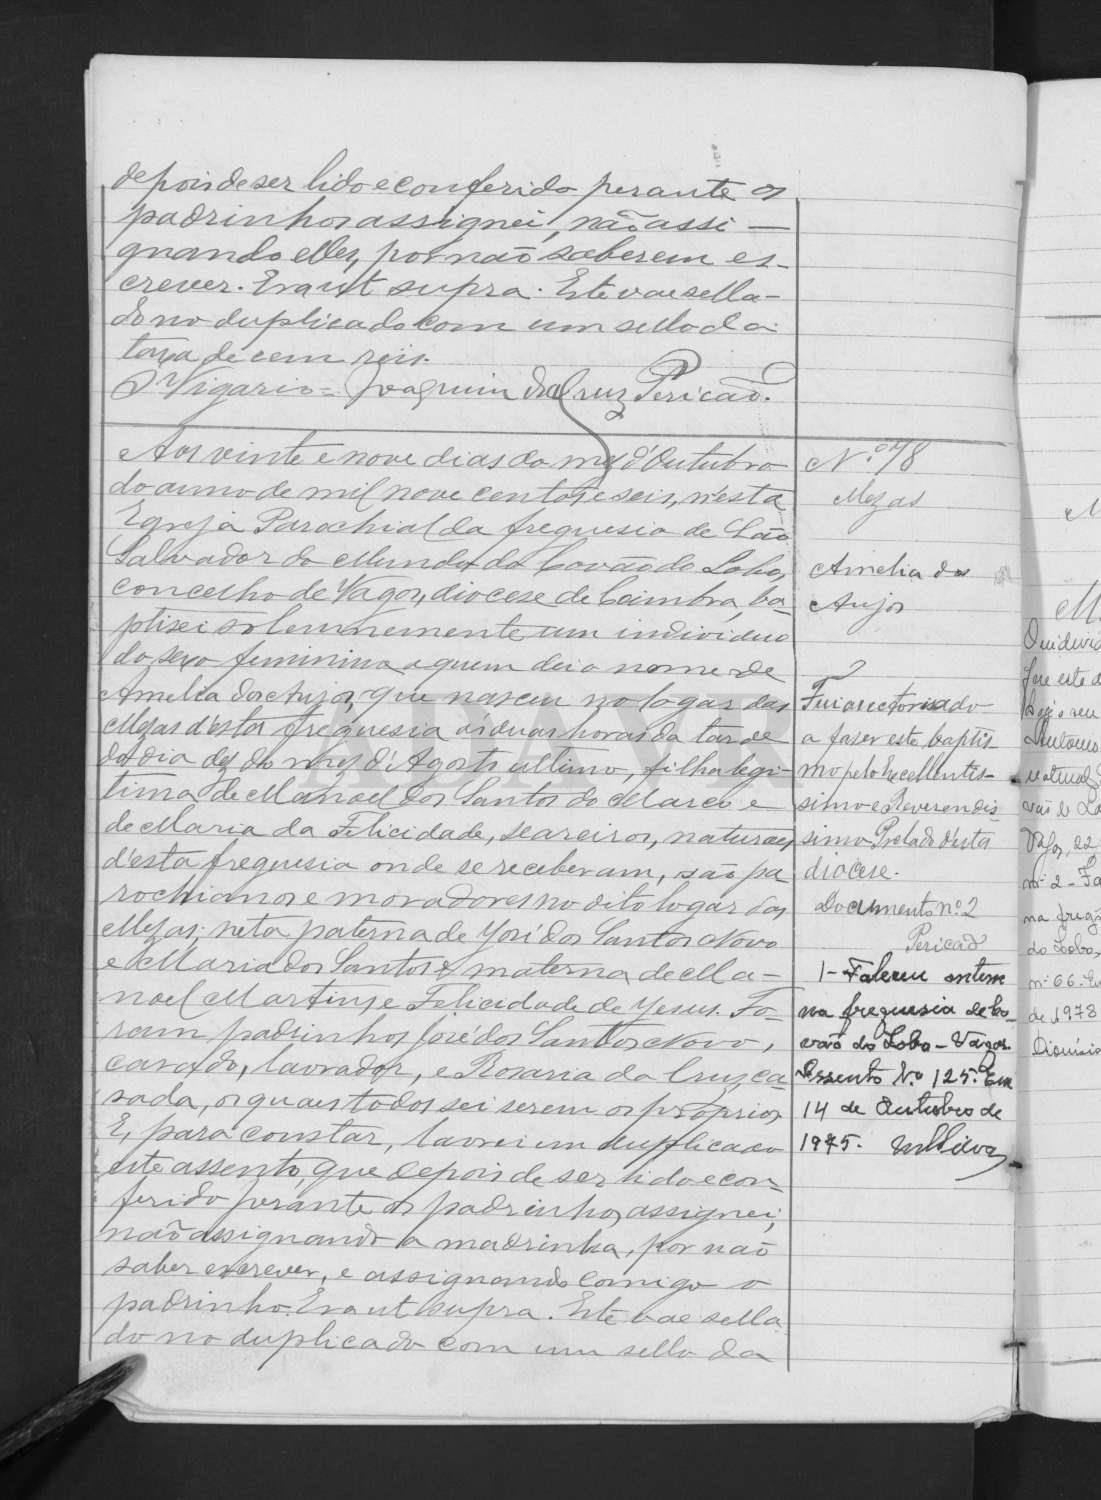 depois de ser lido e conferido perante os
padrinhos assignei, não assi-
gnando elles, por não saberem es-
crever. Era ut supra. Este vae sella-
do no duplicado com um sello da
taxa de cem reis.
O Vigario = Joaquim da Cruz Pericão.
Aos vinte e nove dias do mez d'Outubro
do anno de mil nove centos e seis, n'esta
Egreja Parochial da freguesia de São
Salvador do Mundo do Covão do Lobo,
concelho de Vagos, diocese de Coimbra, ba-
ptisei solemnemente um individuo
do sexo feminino a quem dei o nome de
Amelia dos Anjos, que nasceu no logar das
Mezas d'esta freguesia ás duas horas da tarde
do dia dez do mez d'Agosto ultimo, filha legi-
tima de Manoel dos Santos do Marco e
de Maria da Felicidade, seareiros, naturaes
d'esta freguesia onde se receberam, são pa-
rochianos e moradores no dito logar das
Mezas; neta paterna de José dos Santos Novo
e Maria dos Santos e materna de Ma-
noel Martins e Felicidade de Jesus. Fo-
ram padrinhos José dos Santos Novo,
casado, lavrador, e Rosaria da Cruz ca-
sada, os quaes todos sei serem os proprios
E, para constar, lavrei em duplicado
este assento, que depois de ser lido e con-
ferido perante os padrinhos, assignei,
não assignando a madrinha, por não
saber escrever, e assignando comigo o
padrinho. Era ut supra. Este vae sella
do no duplicado com um sello da
N.º 78
Mezas
Amelia dos
Anjos
Fui auctorisado
a fazer este baptis-
mo pelo Excellentis-
simo e Reverendis
simo Prelado d'esta
diocese.
Documento nº 2
Pericão
1- Faleceu ontem
na freguesia de Co-
vão do Lobo - Vagos.
Assento N.º 125. Em
14 de Outubro de
1975. MSilva
ADAVR